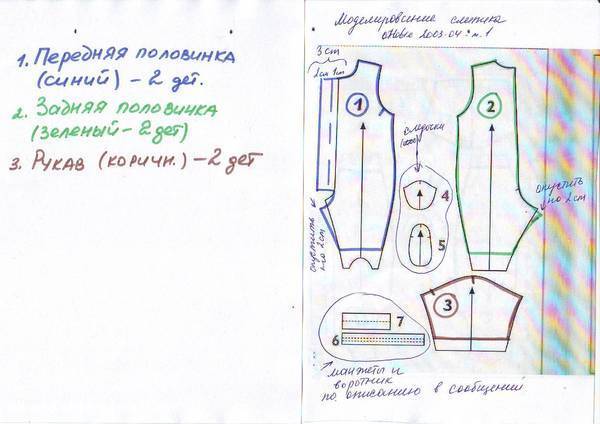 1. Передняя половинка
(синий) – 2 дет.
2. Задняя половинка
(зеленый – 2 дет)
3. Рукав (коричн.) – 2 дет
Моделирование слитика
2003-04
3 cm
2см 1см
1
2
следочки
4
5
опустить
на 2см
опустить
по 2см
3
7
6
манжеты и
воротник
по описанию в сообщении